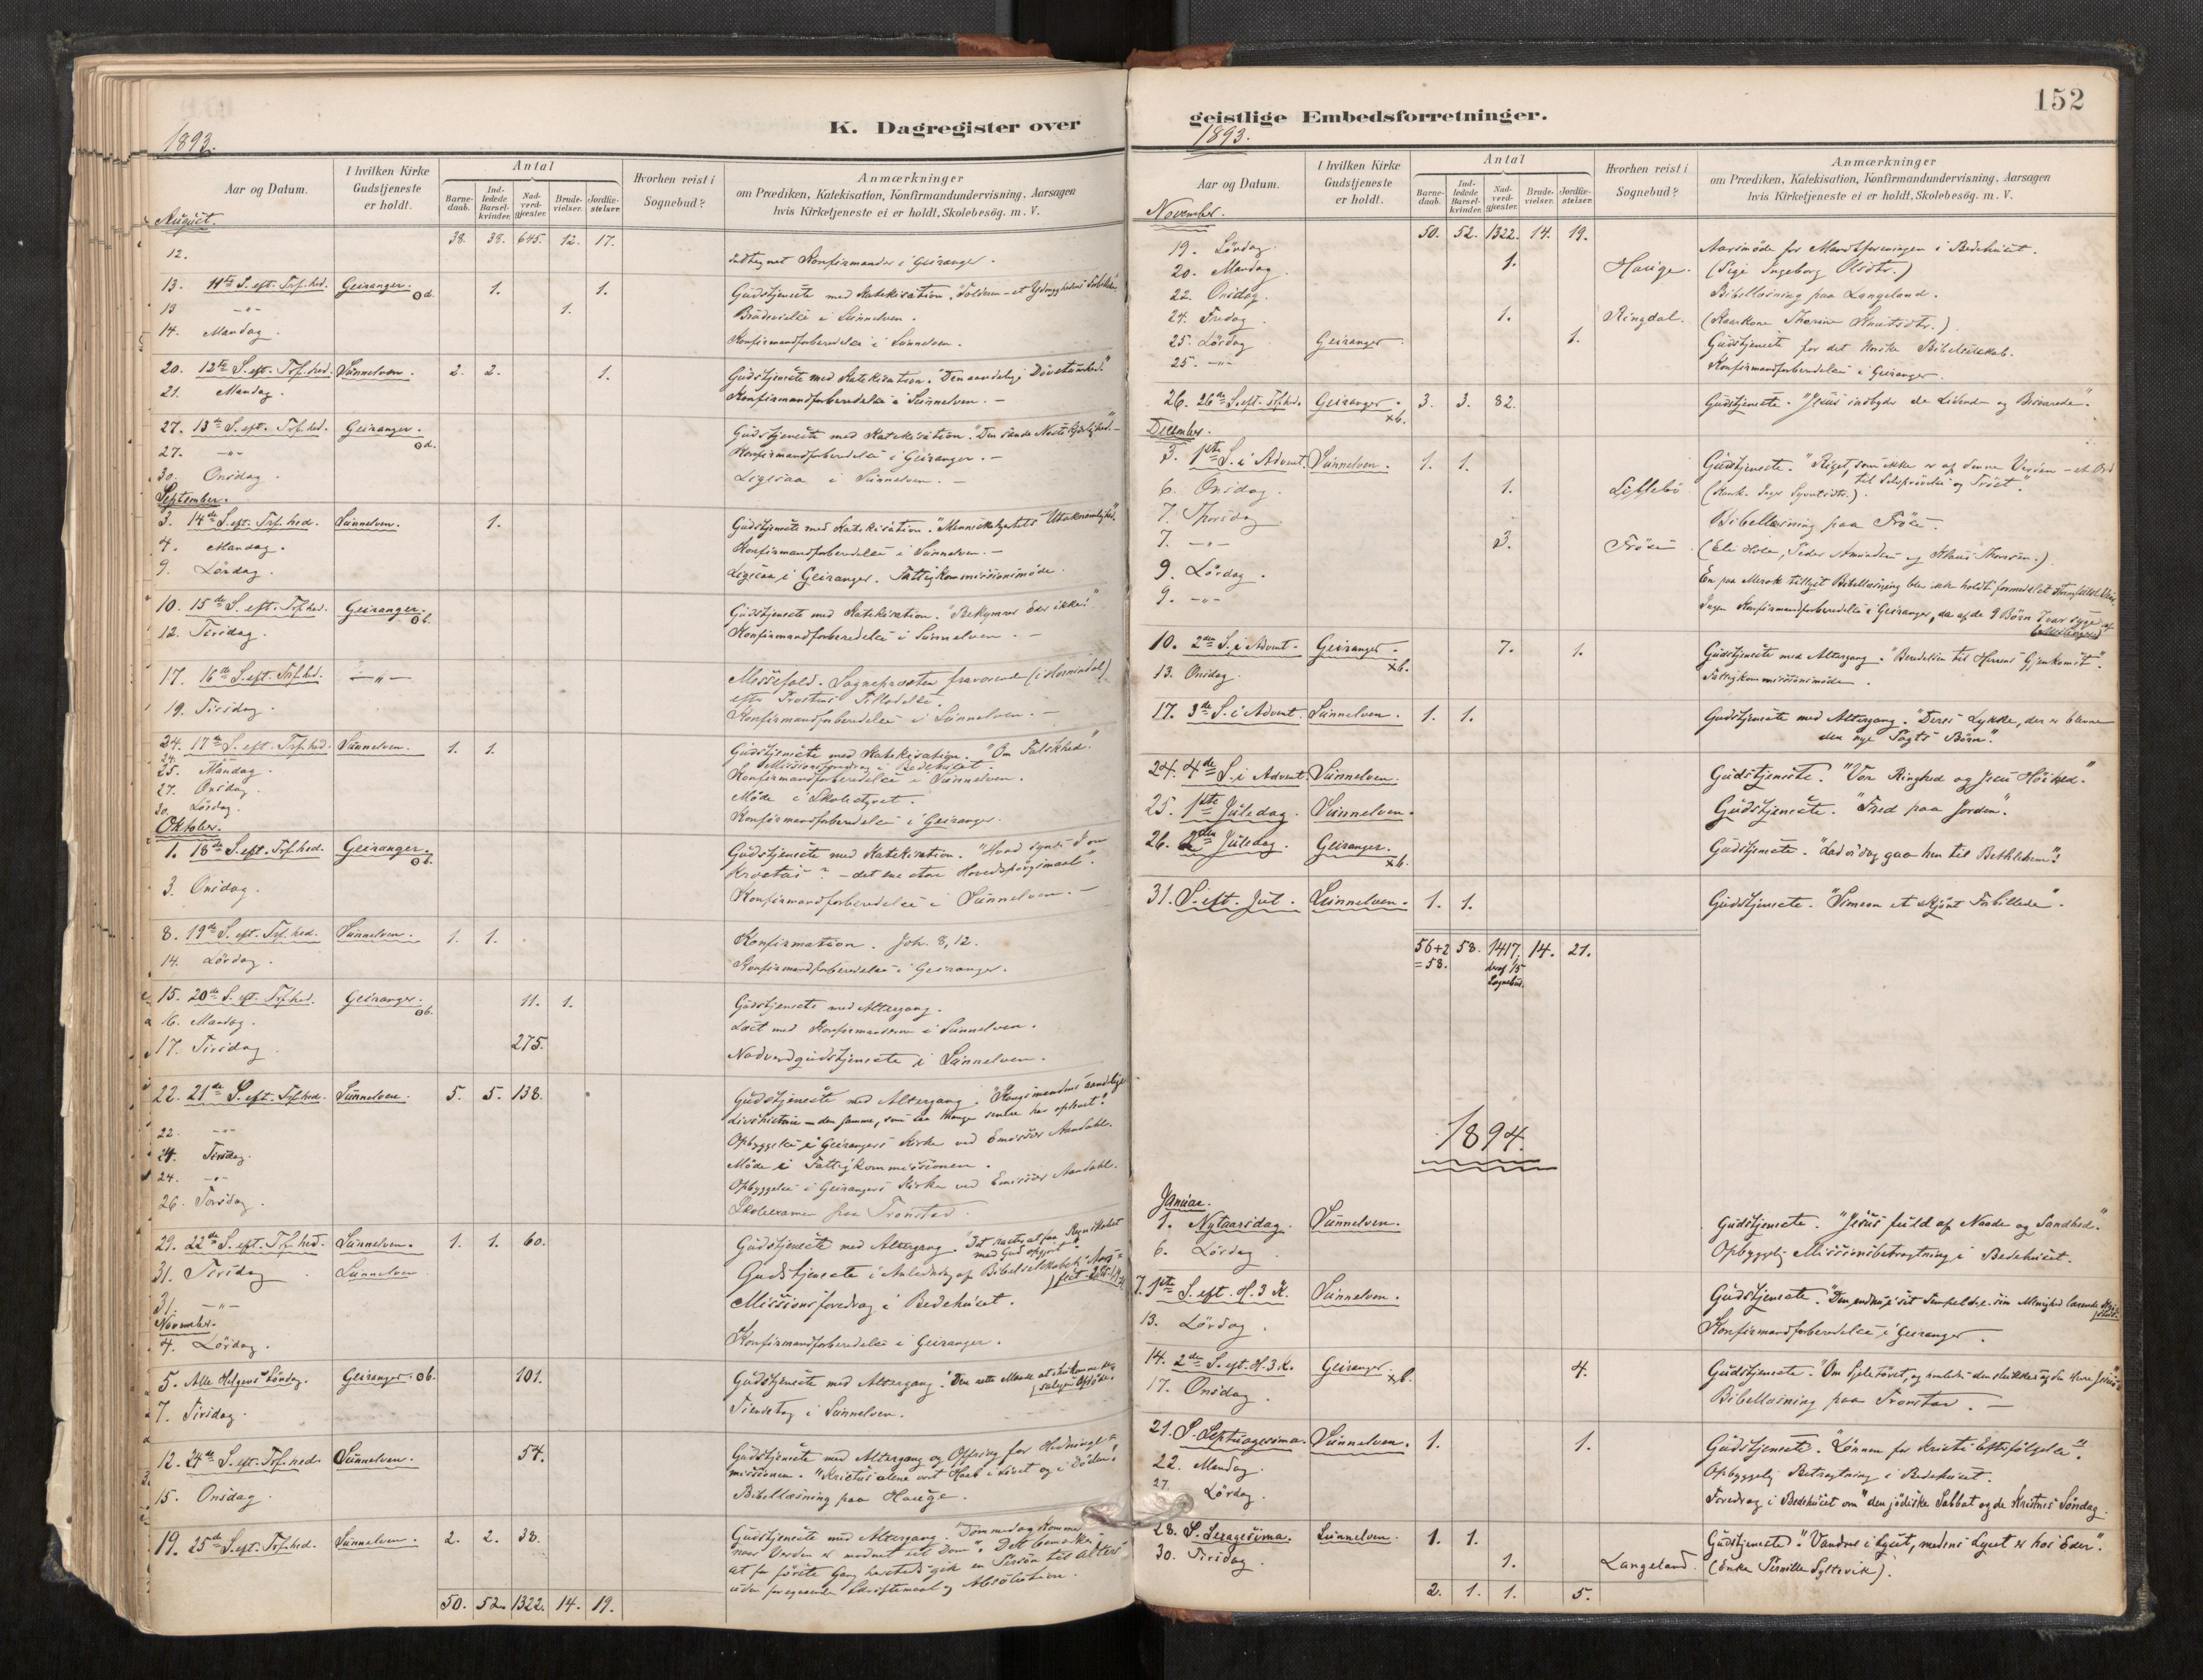 K. Dagregister over
1893.
Aar og Datum.
I hvilken Kirke Gudstjeneste er holdt.
Antal
Barne-daab.
Ind-ledede Barsel-kvinder.
Nad-verd-gjester.
Brude-vielser.
Jordfæ-stelser.
Hvorhen reist i Sognebud?
Anmærkninger
om Prædiken, Katekisation, Konfirmandundervisning, Aarsagen
hvis Kirketjeneste ei er holdt, Skolebesøg. m. V.
August.
38. 38. 645. 12. 17.
12. Indtegnet Konfirmander i Geiranger.
13. 11te S. eft. Tref.hed. Geiranger. 1. 1. Gudstjeneste med Katekisation.
13 -"- 1. Brudevielse i Sunnelven.
14. Mandag. Konfirmandforberedelse i Sunnelven.
20. 12te S. eft. Tref.hed. Sunnelven. 2. 2. 1. Gudstjeneste med Katekisation. "Den aandelige Døvstumhed."
21. Mandag. Konfirmandforberedelse i Sunnelven. -
27. 13de S. eft. Tref.hed. Geiranger. Gudstjeneste med Katekisation. "Den sande Næstekjærlighed." -
27. -"- Konfirmandforberedelse i Geiranger. -
30. Onsdag Ligesaa i Sunnelven. -
September.
3. 14de S. eft. Tref.hed. Sunnelven. 1. Gudstjeneste med Katekisation. "Menneskehjertets Utaknemlighed".
4. Mandag. Konfirmandforberedelse i Sunnelven. -
9. Lördag. Ligesaa i Geiranger. Fattigkommissionsmöde.
10. 15de S. eft. Tref.hed. Geiranger. Gudstjeneste med Katekisation. "Bekymrer Eder ikke!"
12. Tirsdag. Konfirmandforberedelse i Sunnelven. -
17. 16de S. eft. Tref.hed. -"- Messefald. Sognepresten fraværende (i Hornindal)
efter Provstens Tilladelse.
19. Tirsdag. Konfirmandforberedelse i Sunnelven. -
24. 17de S. eft. Tref.hed. Sunnelven. 1. 1. Gudstjeneste med Katekisation. "Om Falskhed."
24. Missionsforedrag i Bedehuset.
25. Mandag. Konfirmandforberedelse i Sunnelven.
27. Onsdag. Möde i Skolestyret.
30. Lördag. Konfirmandforberedelse i Geiranger.
Oktober.
1. 18de S. eft. Tref.hed. Geiranger. Gudstjeneste med Katekisation. "Hvad synes I om
Kristus? - det ene store Hovedspörgsmaal".
3. Onsdag. Konfirmandforberedelse i Sunnelven. -
8. 19de S. eft. Tref.hed. Sunnelven. 1. 1. Konfirmation. Joh. 8, 12.
14. Lördag. Konfirmandforberedelse i Geiranger.
15. 20de S. eft. Tref.hed. Geiranger. 11. 1. Gudstjeneste med Altergang.
16. Mandag. Læst med Konfirmanderne i Sunnelven.
17. Tirsdag 275. Nadverdgudstjeneste i Sunnelven.
22. 21de S. eft. Tref.hed. Sunnelven. 5. 5. 138. Gudstjeneste med Altergang. "Kongsmandens aandelige
Livshistorie - den samme, som saa Mange senere har oplevet."
22. -"- Opbyggelse i Geirangers Kirke ved Emissær Aandahl.
24. Tirsdag. Möde i Fattigkommissionen.
24. -"- Opbyggelse i Geirangers Kirke ved Emissær Aandahl.
26. Torsdag. Skoleexamen paa Tronstad.
29. 22de S. eft. Tref.hed. Sunnelven. 1. 1. 60. Gudstjeneste med Altergang. at faa Regnskabet
med Gud opgjort."
31. Tirsdag Sunnelven Gudstjeneste i Anledning af Bibelselskabets
31. -"- Missionsforedrag i Bedehuset.
November.
4. Lördag. Konfirmandforberedelse i Geiranger.
5. Alle Helgens Söndag. Geiranger. 101. Gudstjeneste med Altergang.
7. Tirsdag. Tiendetag i Sunnelven.
12. 24de S. eft. Tref.hed. Sunnelven. 54. Gudstjeneste med Altergang og Offring for Hedninge-
missionen. "Kristus alene vort Haab i Livet og i Döden."
15. Onsdag. Bibellæsning paa Hauge.
19. 25de S. eft. Tref.hed. Sunnelven. 2. 2. 38. Gudstjeneste med Altergang. "Dommedag kommer
naar Verden er modnet til Dom". Det bemærkes
at for förste Gang gik en Person til Alters
uden foregaaende Skriftemaal og Absolution.
50. 52. 1322. 14. 19.
geistlige Embedsforretninger.
152
1893.
Aar og Datum.
I hvilken Kirke Gudstjeneste er holdt.
Antal
Barne-daab.
Ind-ledede Barsel-kvinder.
Nad-verd-gjester.
Brude-vielser.
Jordfæ-stelser.
Hvorhen reist i Sognebud?
Anmærkninger
om Prædiken, Katekisation, Konfirmandundervisning, Aarsagen
hvis Kirketjeneste ei er holdt, Skolebesøg. m. V.
November.
50. 52. 1322. 14. 19.
19. Lördag. Aarsmöde for Mandsforeningen i Bedehuset.
20. Mandag. 1. Hauge. (Pige Ingeborg Olsdtr.)
22. Onsdag. Bibellæsning paa Langeland.
24. Fredag. 1. Ringdal. (Kaarkone Knutsdtr.)
25. Lördag Geiranger 1. Gudstjeneste for det Norske Bibelselskab.
25. -"- Konfirmandforberedelse i Geiranger.
26. 26de S. eft. Tref.hed. Geiranger. 3. 3. 82. Gudstjeneste. "Jesus indbyder de Lidende og Besværede."
December.
3. 1ste S. i Advent. Sunnelven. 1. 1. Gudstjeneste. "Riget, som ikke er af denne Verden - et Ord
til Selvprøvelse og Tröst."
6. Onsdag. 1. Lillebö
7. Thorsdag Bibellæsning paa Fröen.
7. -"- 3. Fröen
9. Lördag. En paa Merok tillyst Bibellæsning blev ikke holdt formedelst
9. -"- Ingen Konfirmandforberedelse i Geiranger, da af de 9 Börn 7 var syge af
10. 2den S. i Advent. Geiranger. 7. 1. Gudstjeneste med Altergang. "Beredelsen til Herrens Gjenkomst".
13. Onsdag. Fattigkommissionsmöde.
17. 3de S. i Advent. Sunnelven. 1. 1. Gudstjeneste med Altergang. "Deres Lykke, der er blevne
den nye Pagts Börn".
24. 4de S. i Advent. Sunnelven. Gudstjeneste. "Vor Ringhed og Jesu Höihed."
25. 1ste Juledag. Sunnelven. Gudstjeneste. "Fred paa Jorden".
26. 2den Juledag. Geiranger. Gudstjeneste. "Lad os dog gaa hen til Bethlehem"!
31. S. eft. Jul. Sunnelven. 1. 1. Gudstjeneste. "Simeon et skjönt Forbillede".
56+2 58. 1417. 14. 21.
=58. deraf 15
Sognebud.
1894.
Januar.
1. Nytaarsdag. Sunnelven. Gudstjeneste. "Jesus fuld af Naade og Sandhed."
6. Lördag Opbyggelig Missionsbetragtning i Bedehuset.
7. 1ste S. eft. H. 3 K. Sunnelven. Gudstjeneste.
13. Lördag. Konfirmandforberedelse i Geiranger.
14. 2den S. eft. H. 3 K. Geiranger. 4. Gudstjeneste.
17. Onsdag. Bibellæsning paa Tronstad. -
21. S. Septuagesima. Sunnelven. 1. 1. Gudstjeneste. "Lönnen for Kristi Efterfölgelse".
22. Mandag. Opbyggelig Betragtning i Bedehuset.
27. Lördag. Foredrag i Bedehuset om "den jödiske Sabbat og de Kristnes Söndag.
28. S. Sexagesima. Sunnelven. 1. 1. Gudstjeneste. "Vandrer i Lyset, medens Lyset er hos Eder".
30. Tirsdag. 1. Langeland. (Enke Pernille Syltevik).
2. 1. 1. 5.